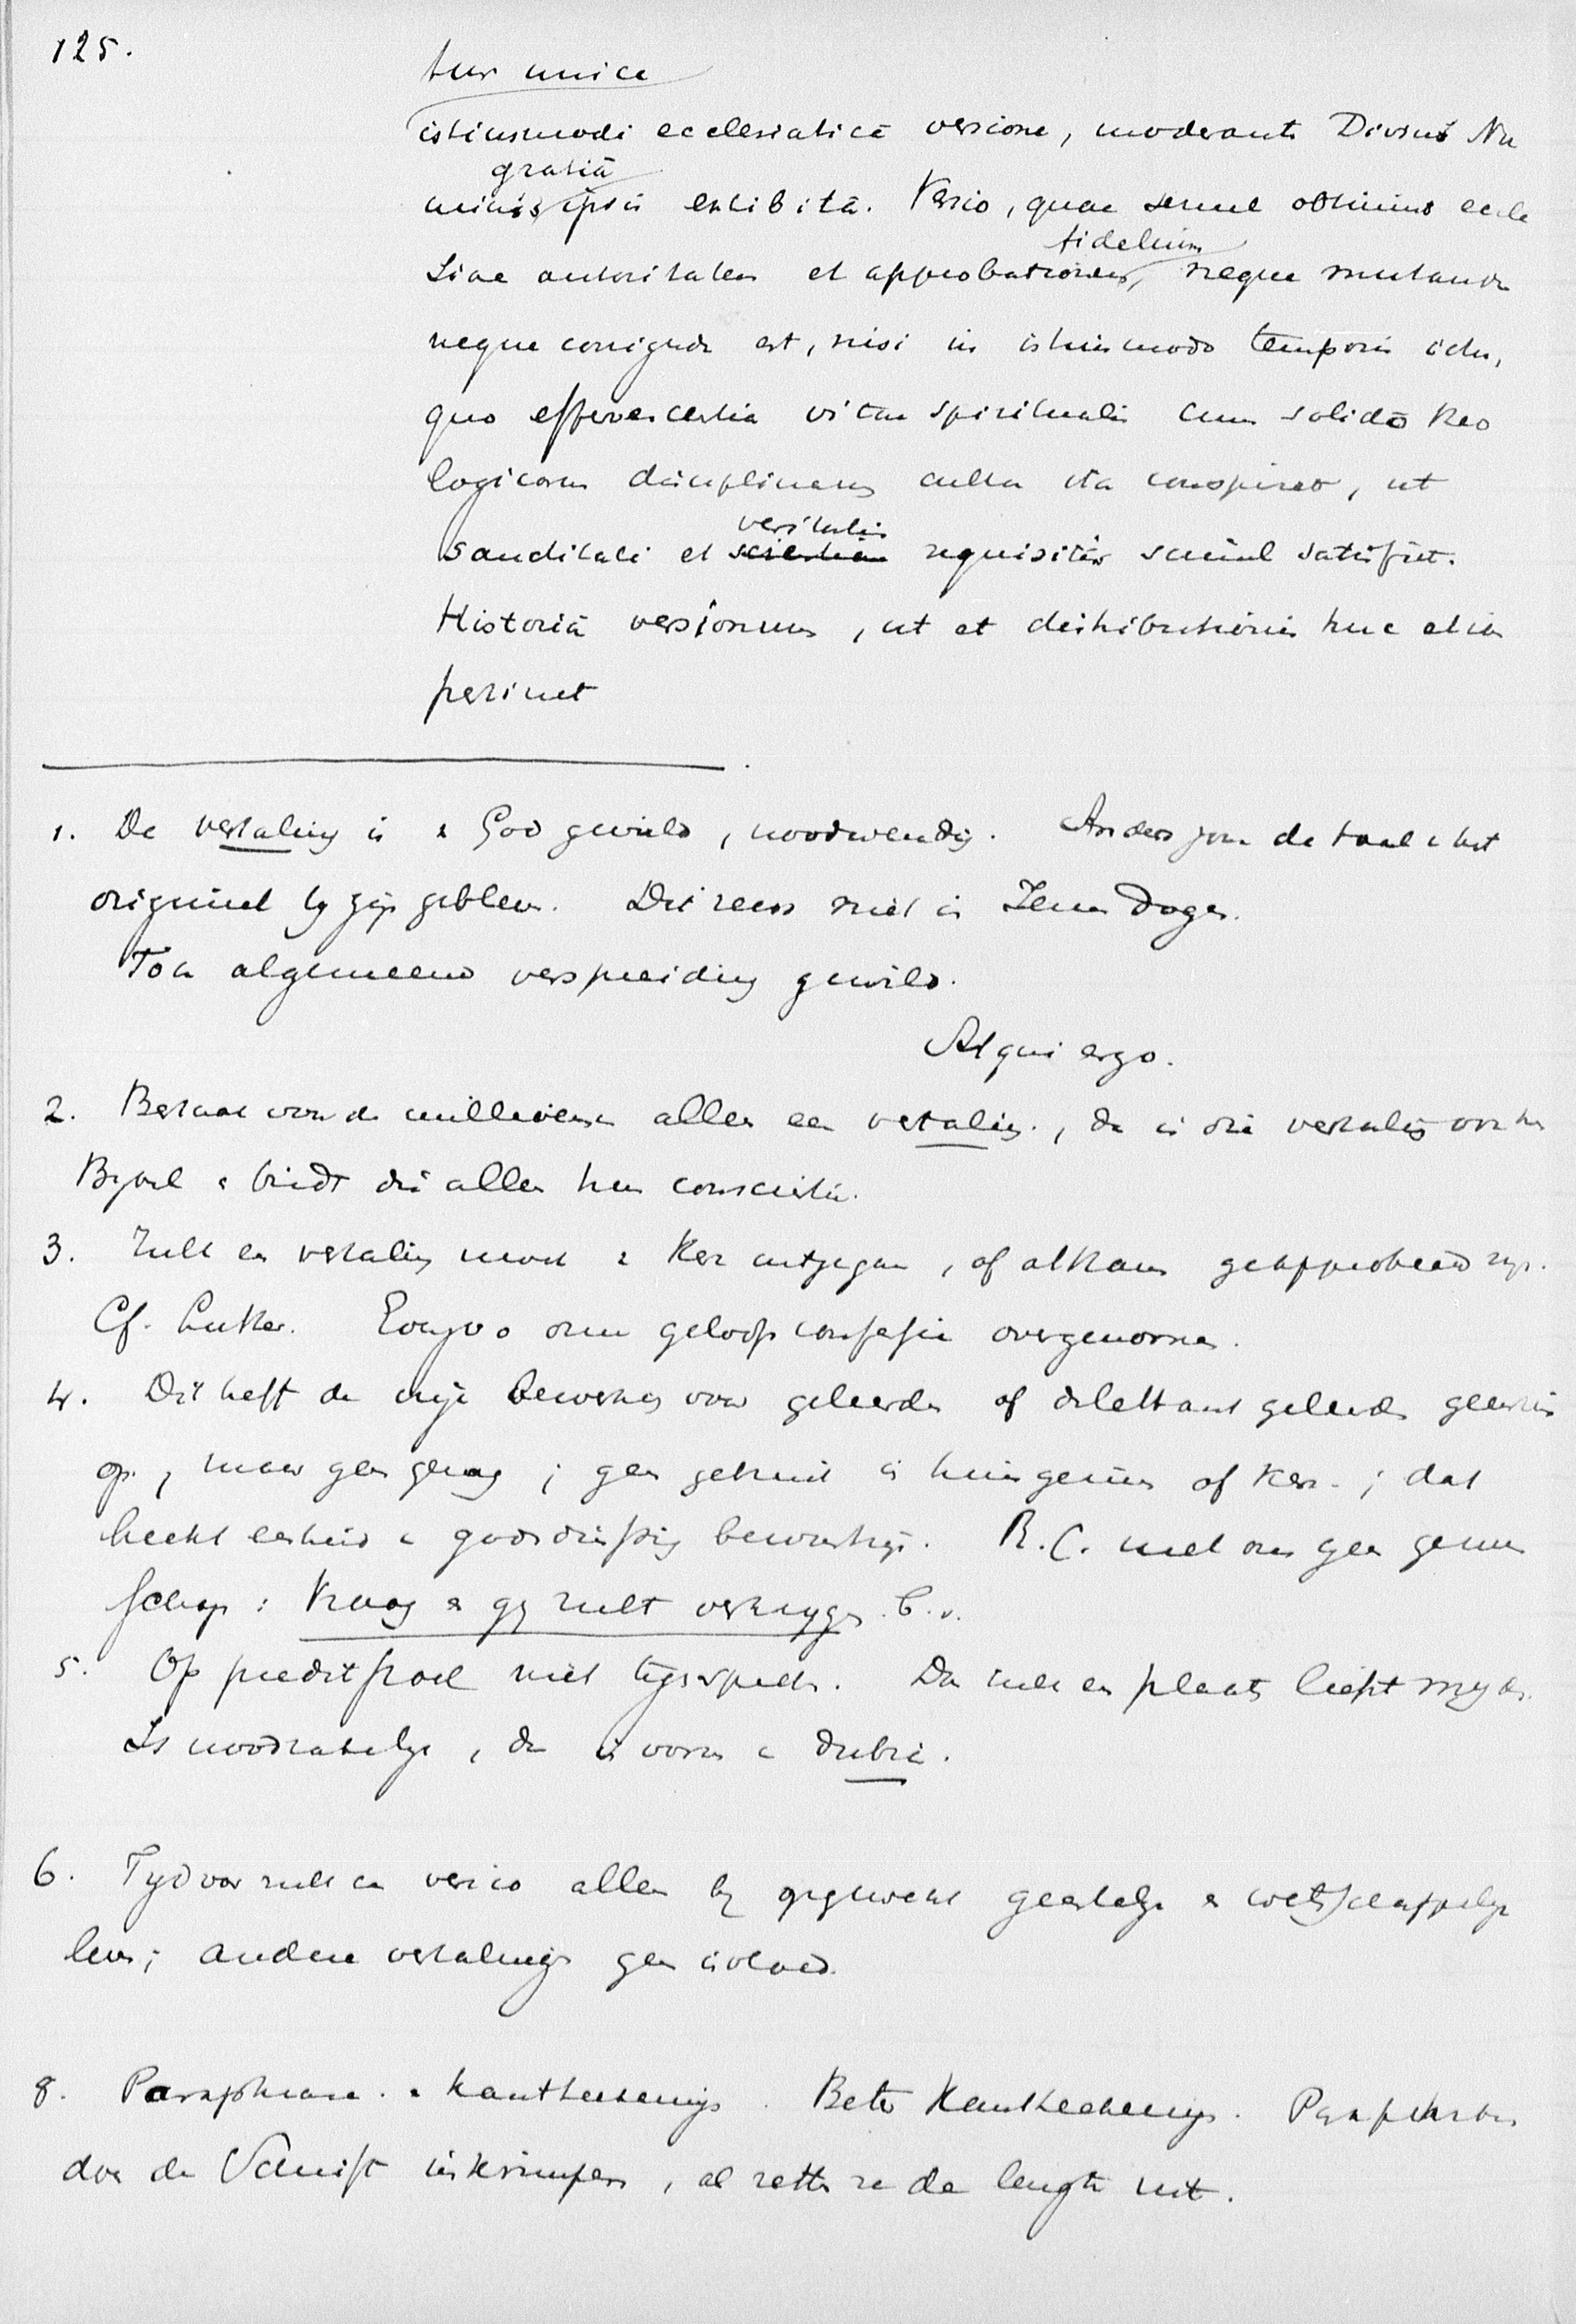 125.
tur unice
istiusmodi ecclesiaticâ versione, moderante Divini Nu
gratiâ
minis ipsis exhibitâ. Versio, quae semel obtinuit eccle
fidelium
siae autoritatem et approbationem, neque mutanda
neque corrigenda est, nisi in istiusmodo temporis ictu,
quo effervescentia vitae spiritualis cum solido theo
logicarum disciplinarum cultu ita conspirat, ut
veritatis
sanctitati et scientiae requisitis simul satisfiat.
Historia versionum, ut et distributionis huc etiam
pertinet
1. De vertaling is God gewild, noodwendig. Anders zou de taal het
origineel by zijn gebleven. Dit reeds niet in Jezus dagen.
Toch algemeene verspreiding gewild.
Atqui ergo.
2. Bestaat voor de millioenen alleen een vertaling, dan is die vertaling voor hen
Bybel & bindt die alleen hun conscientie.
3. Zulk een vertaling moet Kerk uitgegaan, of althans geapprobeerd zijn.
Cf. Luther. onze geloofsconfessie overgenomen.
4. Dit heft de vrije bewerking voor geleerden of dilettant geleerden geenszins
op, maar geen gezag; geen gebruik in huisgezin of Kerk; dat
hecht eenheid godsdienstig bewustzijn. R.C. met ons geen gemeen
schap: Vraag & gij zult verkrygen b.v.
5. Op preekstoel niet tegenspreken. Dan zulk een plaats liefst myden.
Is noodzakelijk, dan is vorm dubia.
6. Tyd voor zulk een versio alleen by opgewekt geestelijk & wetschappelijk
leven; andere vertalingen geen invloed.
8. Paraphrase & kantteekening. Beter Kantteekening. Paraphrase
doe de Schrift inkrimpen, al zette ze de lengte uit.